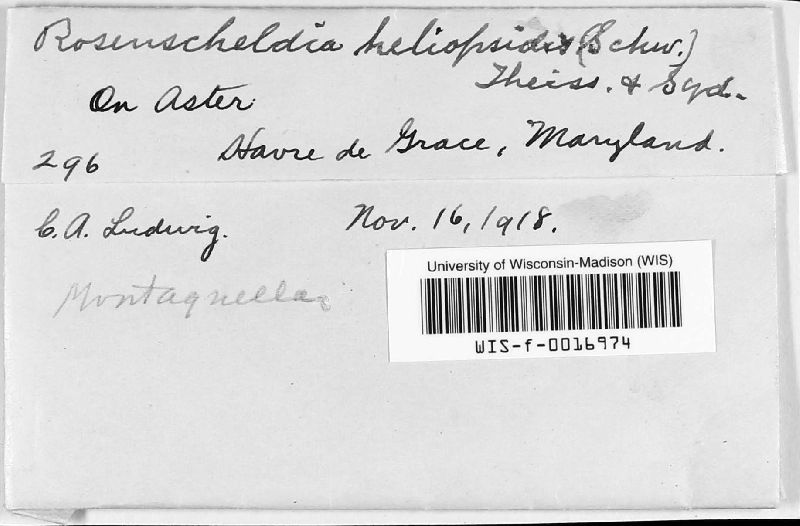 Rosenscheldia heliopsidis (Schw.)
Theiss. & Syd.
On Aster
296 Havre de Grace, Maryland.
C. A. Ludwig. Nov. 16, 1918.
University of Wisconsin-Madison (WIS)
WIS-f-0016974
Montagnella